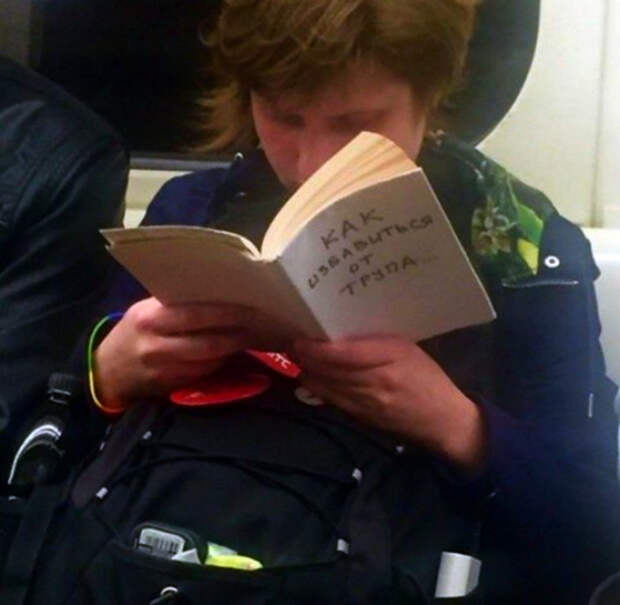 КАК
ИЗБАВИТЬСЯ
ОТ
ТРУПА...